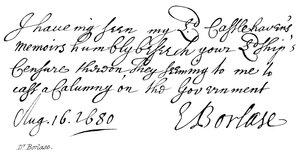 I have my seen my Ld Castlehaven's
memoirs humbly beseech your Ldship's
Censure thereon They seeming to me to
cast a Calumny on the Government
Aug. 16. 1680
E Borlase
Dr Borlase.